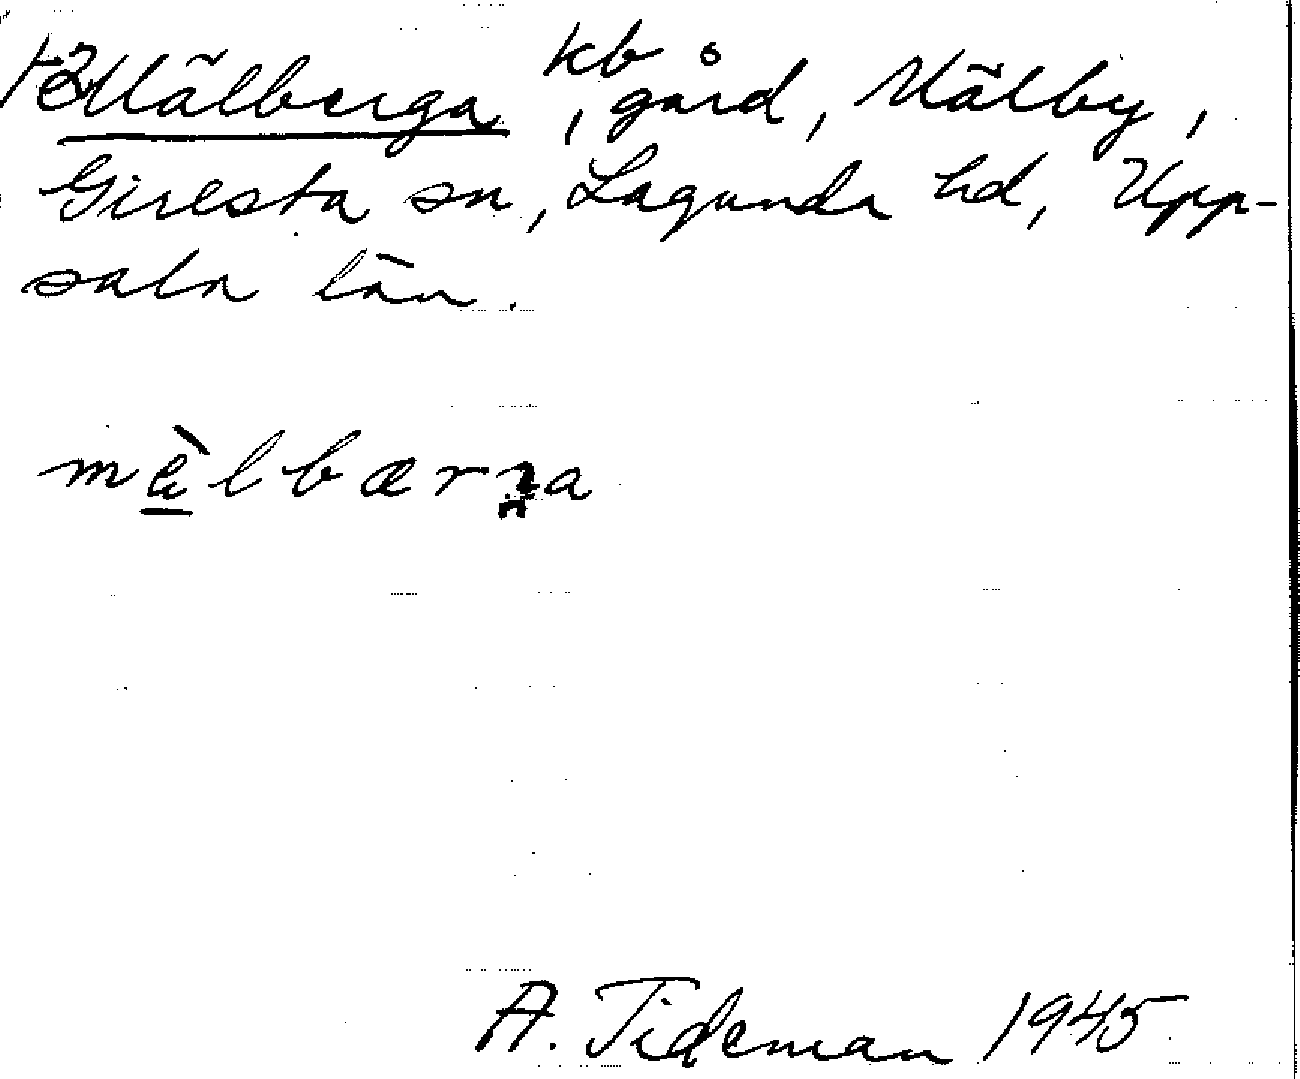 Mälberga kb, gård, Mälby,
Giresta sn, Lagunda hd, Upp-
sala län.
mèlbærɳa
A. Tideman 1945